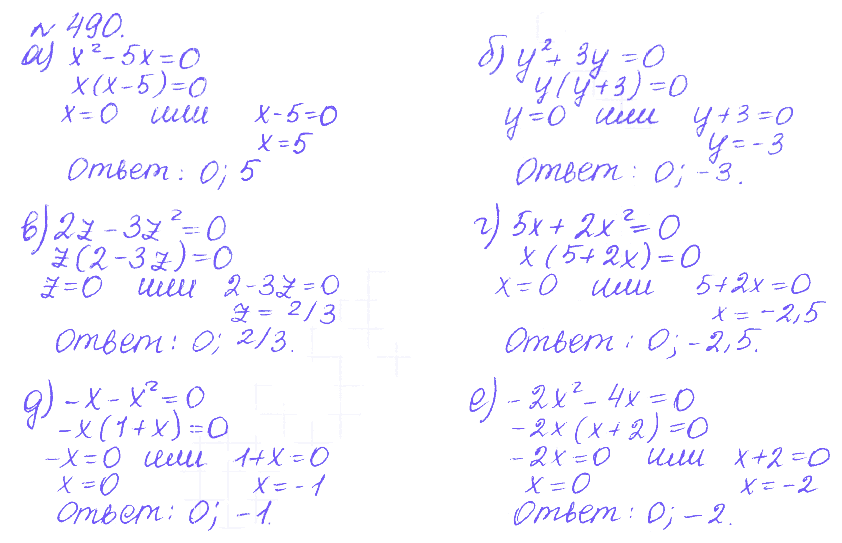 № 490.
а) x² - 5x = 0
x(x-5) = 0
x = 0 или x - 5 = 0
x = 5
Ответ: 0; 5
б) y² + 3y = 0
y(y+3) = 0
y = 0 или y + 3 = 0
y = -3
Ответ: 0; -3.
в) 2z - 3z² = 0
z(2-3z) = 0
z = 0 или 2 - 3z = 0
z = 2/3
Ответ: 0; 2/3.
г) 5x + 2x² = 0
x(5+2x) = 0
x = 0 или 5 + 2x = 0
x = -2,5
Ответ: 0; -2,5.
д) -x - x² = 0
-x(1+x) = 0
-x = 0 или 1 + x = 0
x = 0 x = -1
Ответ: 0; -1.
е) -2x² - 4x = 0
-2x(x+2) = 0
-2x = 0 или x + 2 = 0
x = 0 x = -2
Ответ: 0; -2.